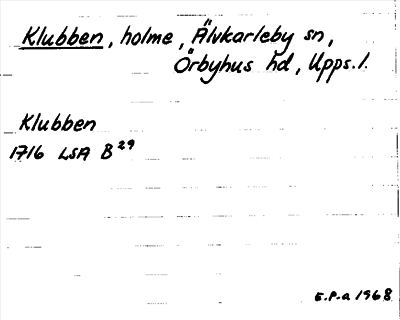 Klubben, holme, Älvkarleby sn,
Örbyhus hd, Upps.l.
Klubben
1716 LSA B29
E.P-a 1968